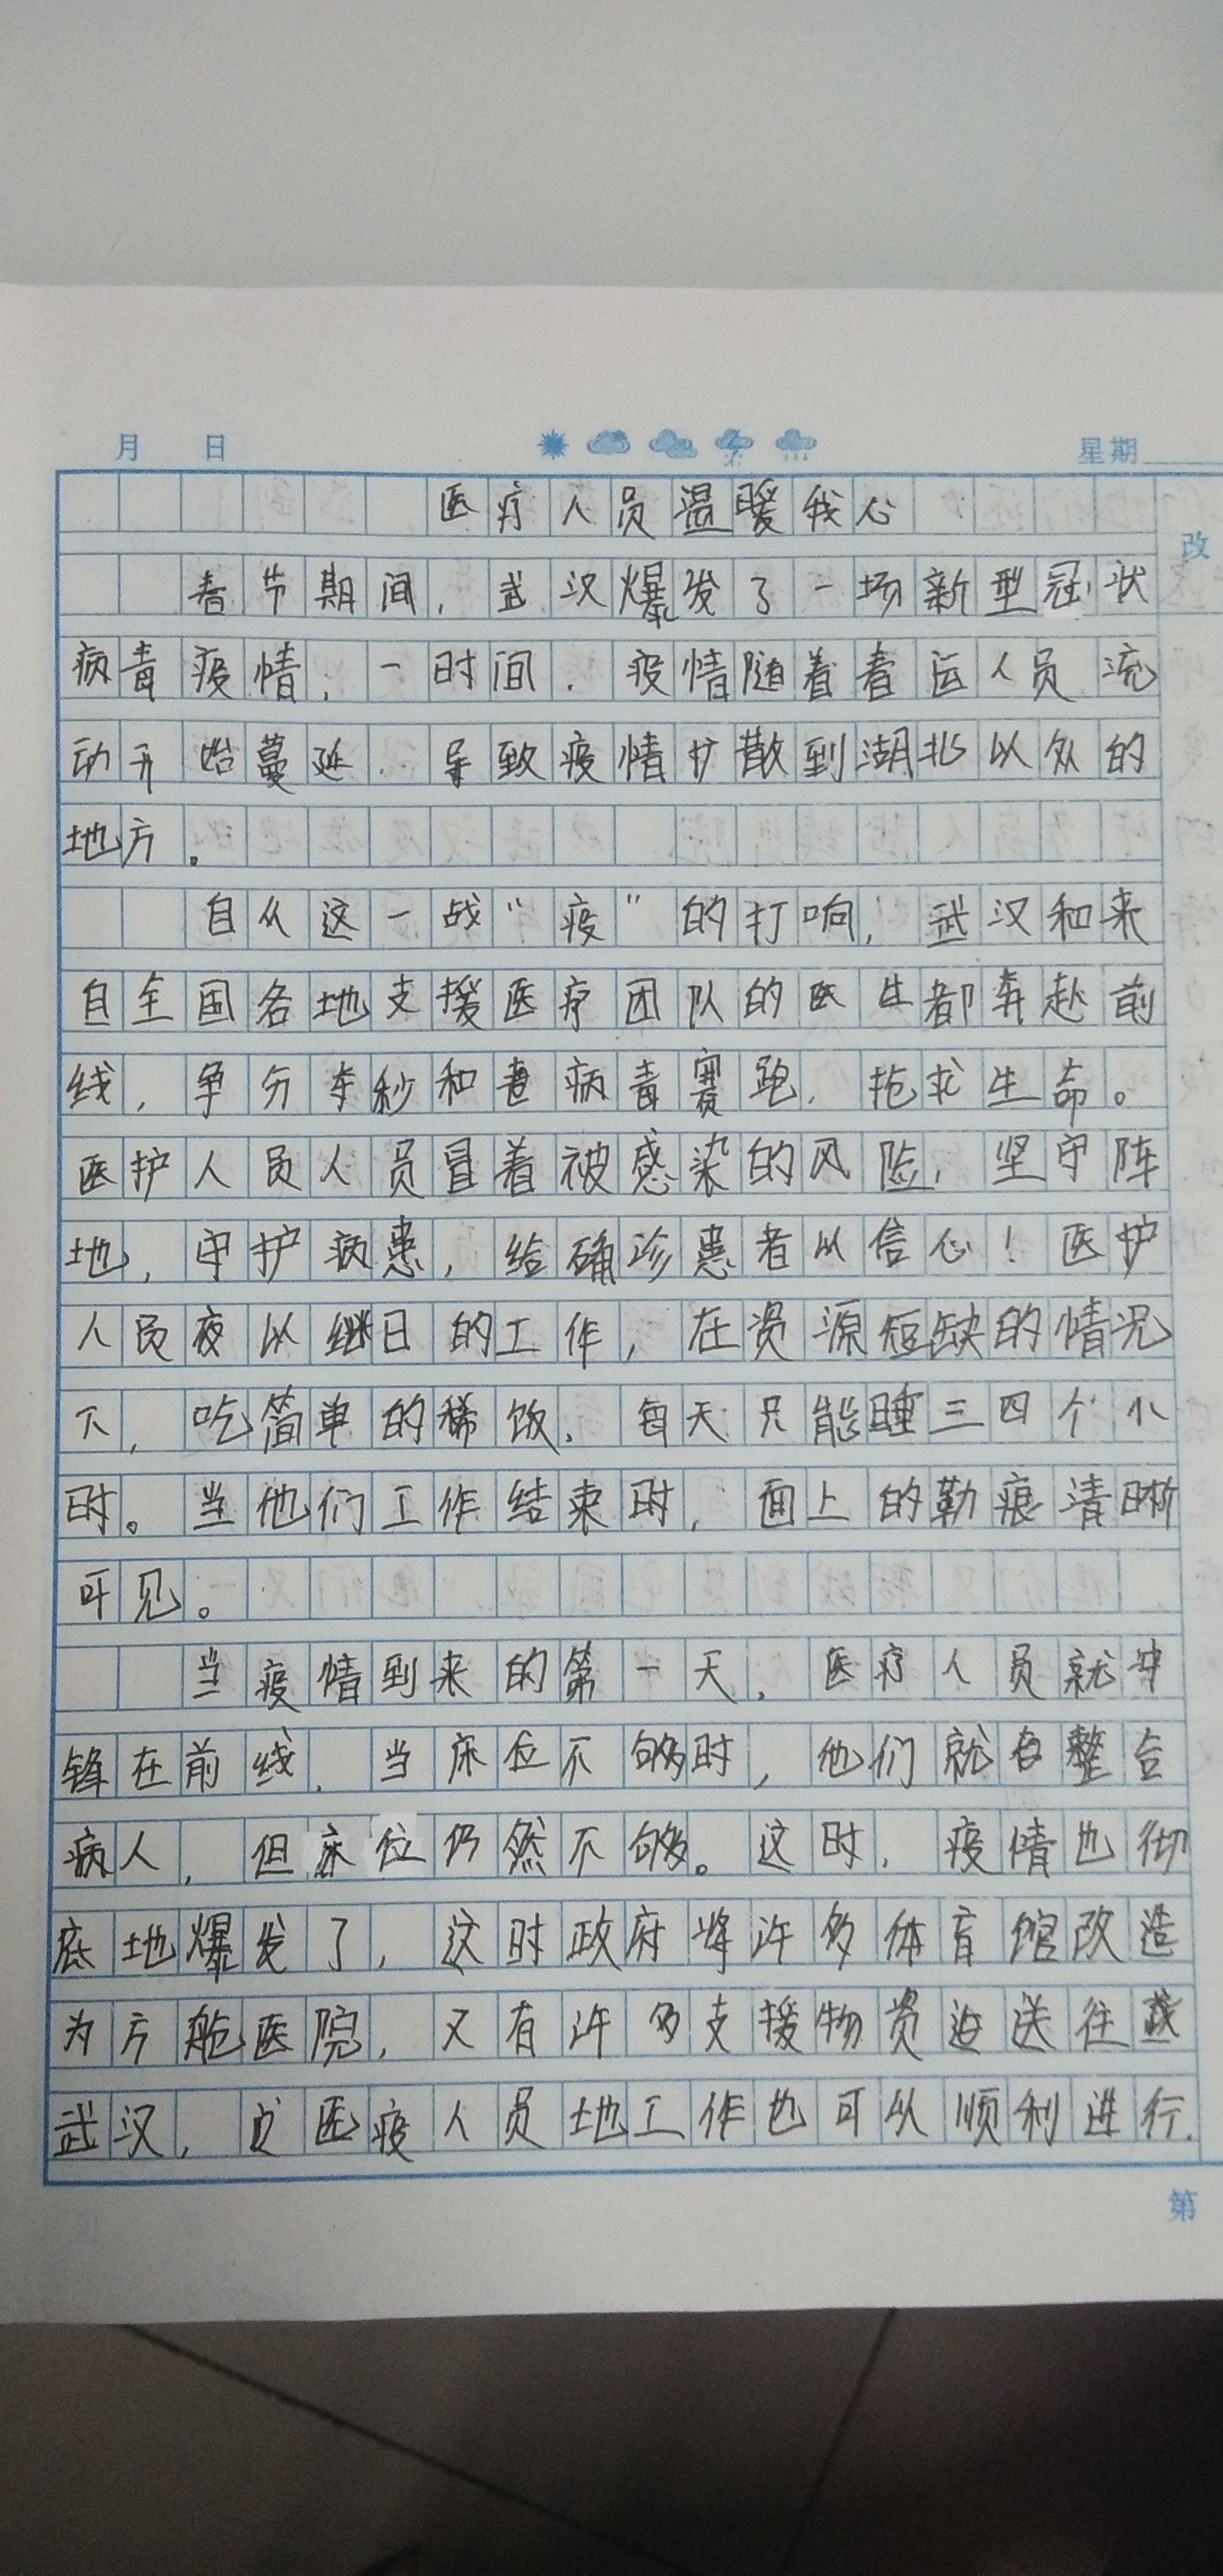 月 日 星期
医疗人员温暖我心
改
春节期间，武汉爆发了一场新型冠状
病毒疫情，一时间，疫情随着春运人员流
动开始蔓延，导致疫情扩散到湖北以外的
地方。
自从这一战“疫”的打响，武汉和来
自全国各地支援医疗团队的医生都奔赴前
线，争分夺秒和着病毒赛跑，抢求生命。
医护人员人员冒着被感染的风险，坚守阵
地，守护病患，给确诊患者以信心！医护
人员夜以继日的工作，在资源短缺的情况
下，吃简单的稀饭，每天只能睡三四个小
时。当他们工作结束时，面上的勒痕清晰
可见。
当疫情到来的第一天，医疗人员就冲
锋在前线，当床位不够时，他们就自整合
病人，但床位仍然不够。这时，疫情也彻
底地爆发了，这时政府将许多体育馆改造
为方舱医院，又有许多支援物资运送往
武汉，医疫人员地工作也可以顺利进行.
第